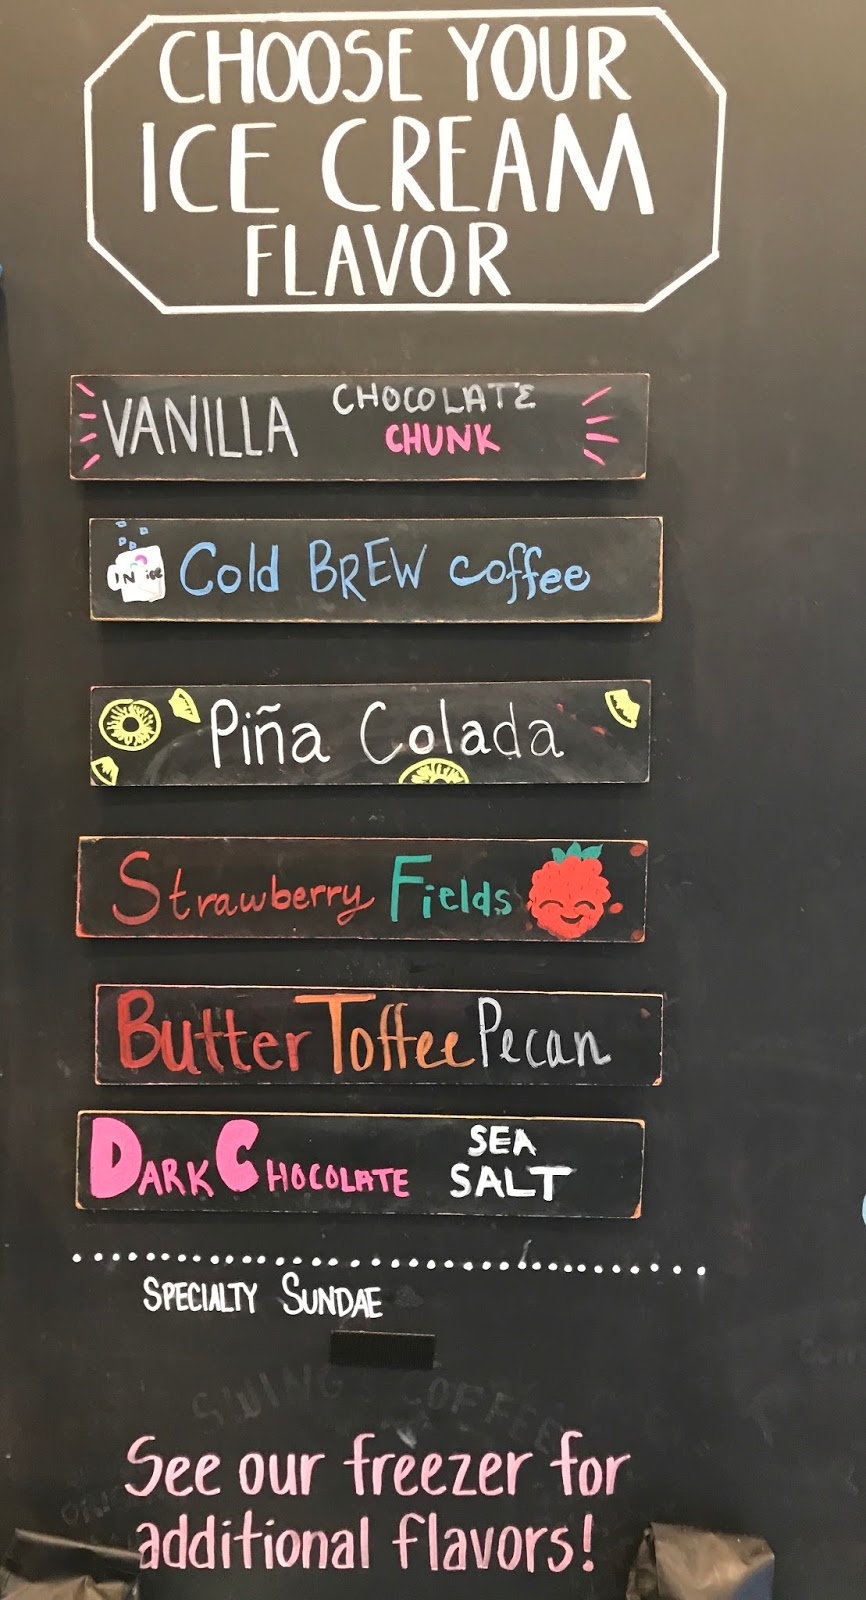 CHOOSE YOUR
ICE CREAM
FLAVOR
VANILLA CHOCOLATE
CHUNK
IN ice
Cold BREW coffee
Piña Colada
Strawberry Fields
Butter Toffee Pecan
DARK CHOCOLATE SEA
SALT
SPECIALTY SUNDAE
COFFEE
See our freezer for
additional flavors!